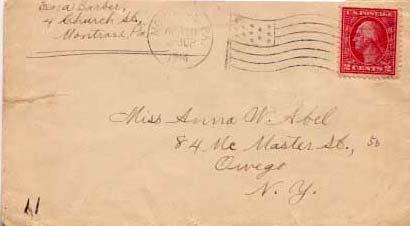 Barber,
4 Church St.,
Montrose, Pa.
U.S. POSTAGE
2 CENTS 2
Miss Anna W. Abel
84 Mc Master St.,
Owego
N. Y.
11